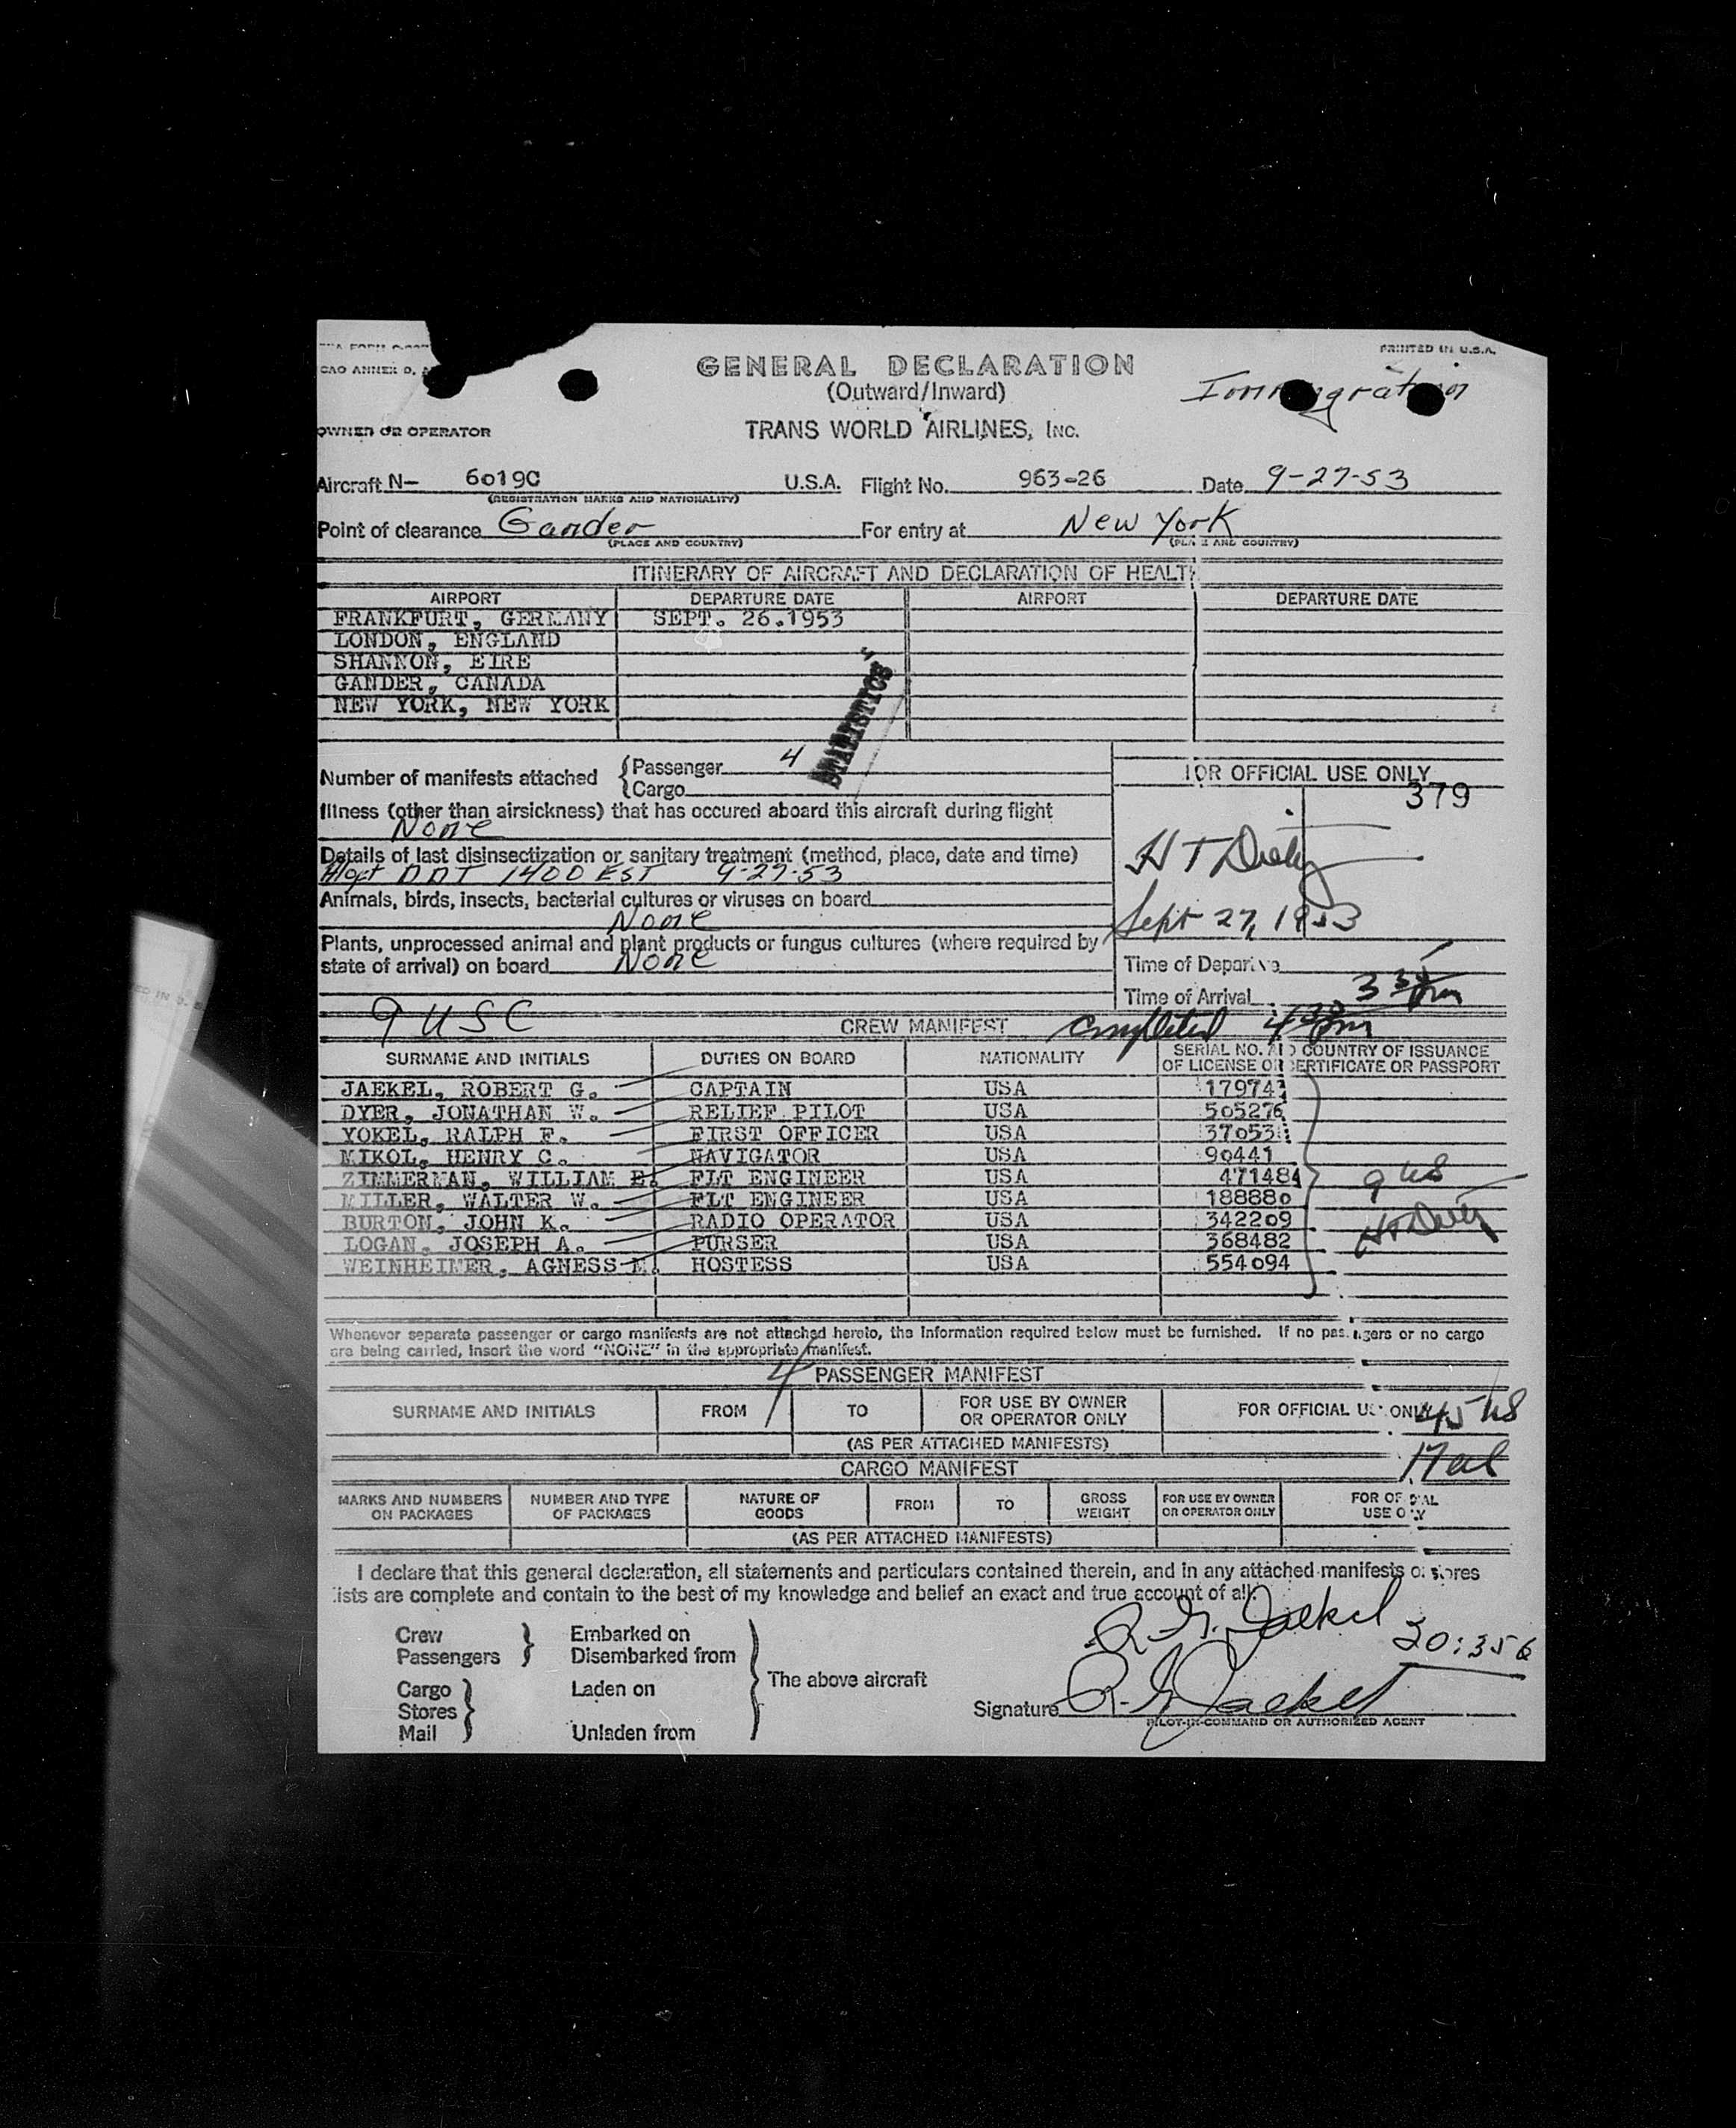 CAO ANNEX 9,
PRINTED IN U.S.A.
GENERAL DECLARATION
(Outward/Inward)
Immigration
OWNER OR OPERATOR
TRANS WORLD AIRLINES, INC.
Aircraft N- 6019C U.S.A. Flight No. 963-26 Date 9-27-53
(REGISTRATION MARKS AND NATIONALITY)
Point of clearance Gander For entry at New York
(PLACE AND COUNTRY) (PLACE AND COUNTRY)
ITINERARY OF AIRCRAFT AND DECLARATION OF HEALTH
AIRPORT DEPARTURE DATE AIRPORT DEPARTURE DATE
FRANKFURT, GERMANY SEPT. 26.1953
LONDON, ENGLAND
SHANNON, EIRE
GANDER, CANADA
NEW YORK, NEW YORK
STATISTICS
Number of manifests attached
Passenger 4
Cargo
FOR OFFICIAL USE ONLY
379
Illness (other than airsickness) that has occured aboard this aircraft during flight
None
Details of last disinsectization or sanitary treatment (method, place, date and time)
DDT 1400 EST 9-27-53
Animals, birds, insects, bacterial cultures or viruses on board
None
Sept 27, 1953
Plants, unprocessed animal and plant products or fungus cultures (where required by
state of arrival) on board None
Time of Departure
Time of Arrival
9 USC
CREW MANIFEST completed 4 30 pm
SURNAME AND INITIALS DUTIES ON BOARD NATIONALITY SERIAL NO. AND COUNTRY OF ISSUANCE
OF LICENSE OR CERTIFICATE OR PASSPORT
JAEKEL, ROBERT G. CAPTAIN USA
DYER, JONATHAN W. RELIEF PILOT USA 505276
YOKEL, RALPH F. FIRST OFFICER USA
MIKOL, HENRY C. NAVIGATOR USA 90441
ZIMMERMAN, WILLIAM E. FLT ENGINEER USA 471484
MILLER, WALTER W. FLT ENGINEER USA 188880
BURTON, JOHN K. RADIO OPERATOR USA 342209
LOGAN, JOSEPH A. PURSER USA 368482
WEINHEIMER, AGNESS M. HOSTESS USA 554094
9 US
Whenever separate passenger or cargo manifests are not attached hereto, the information required below must be furnished. If no passengers or no cargo
are being carried, insert the word "NONE" in the appropriate manifest.
4
PASSENGER MANIFEST
SURNAME AND INITIALS FROM TO FOR USE BY OWNER
OR OPERATOR ONLY FOR OFFICIAL USE ONLY
45 US
(AS PER ATTACHED MANIFESTS)
17 al
CARGO MANIFEST
MARKS AND NUMBERS
ON PACKAGES NUMBER AND TYPE
OF PACKAGES NATURE OF
GOODS FROM TO GROSS
WEIGHT FOR USE BY OWNER
OR OPERATOR ONLY FOR OFFICIAL
USE ONLY
(AS PER ATTACHED MANIFESTS)
I declare that this general declaration, all statements and particulars contained therein, and in any attached manifests or stores
lists are complete and contain to the best of my knowledge and belief an exact and true account of all.
R. G. Jaekel
Crew
Passengers
Embarked on
Disembarked from
Cargo
Stores
Mail
Laden on
Unladen from
The above aircraft
Signature R. G. Jaekel
PILOT-IN-COMMAND OR AUTHORIZED AGENT